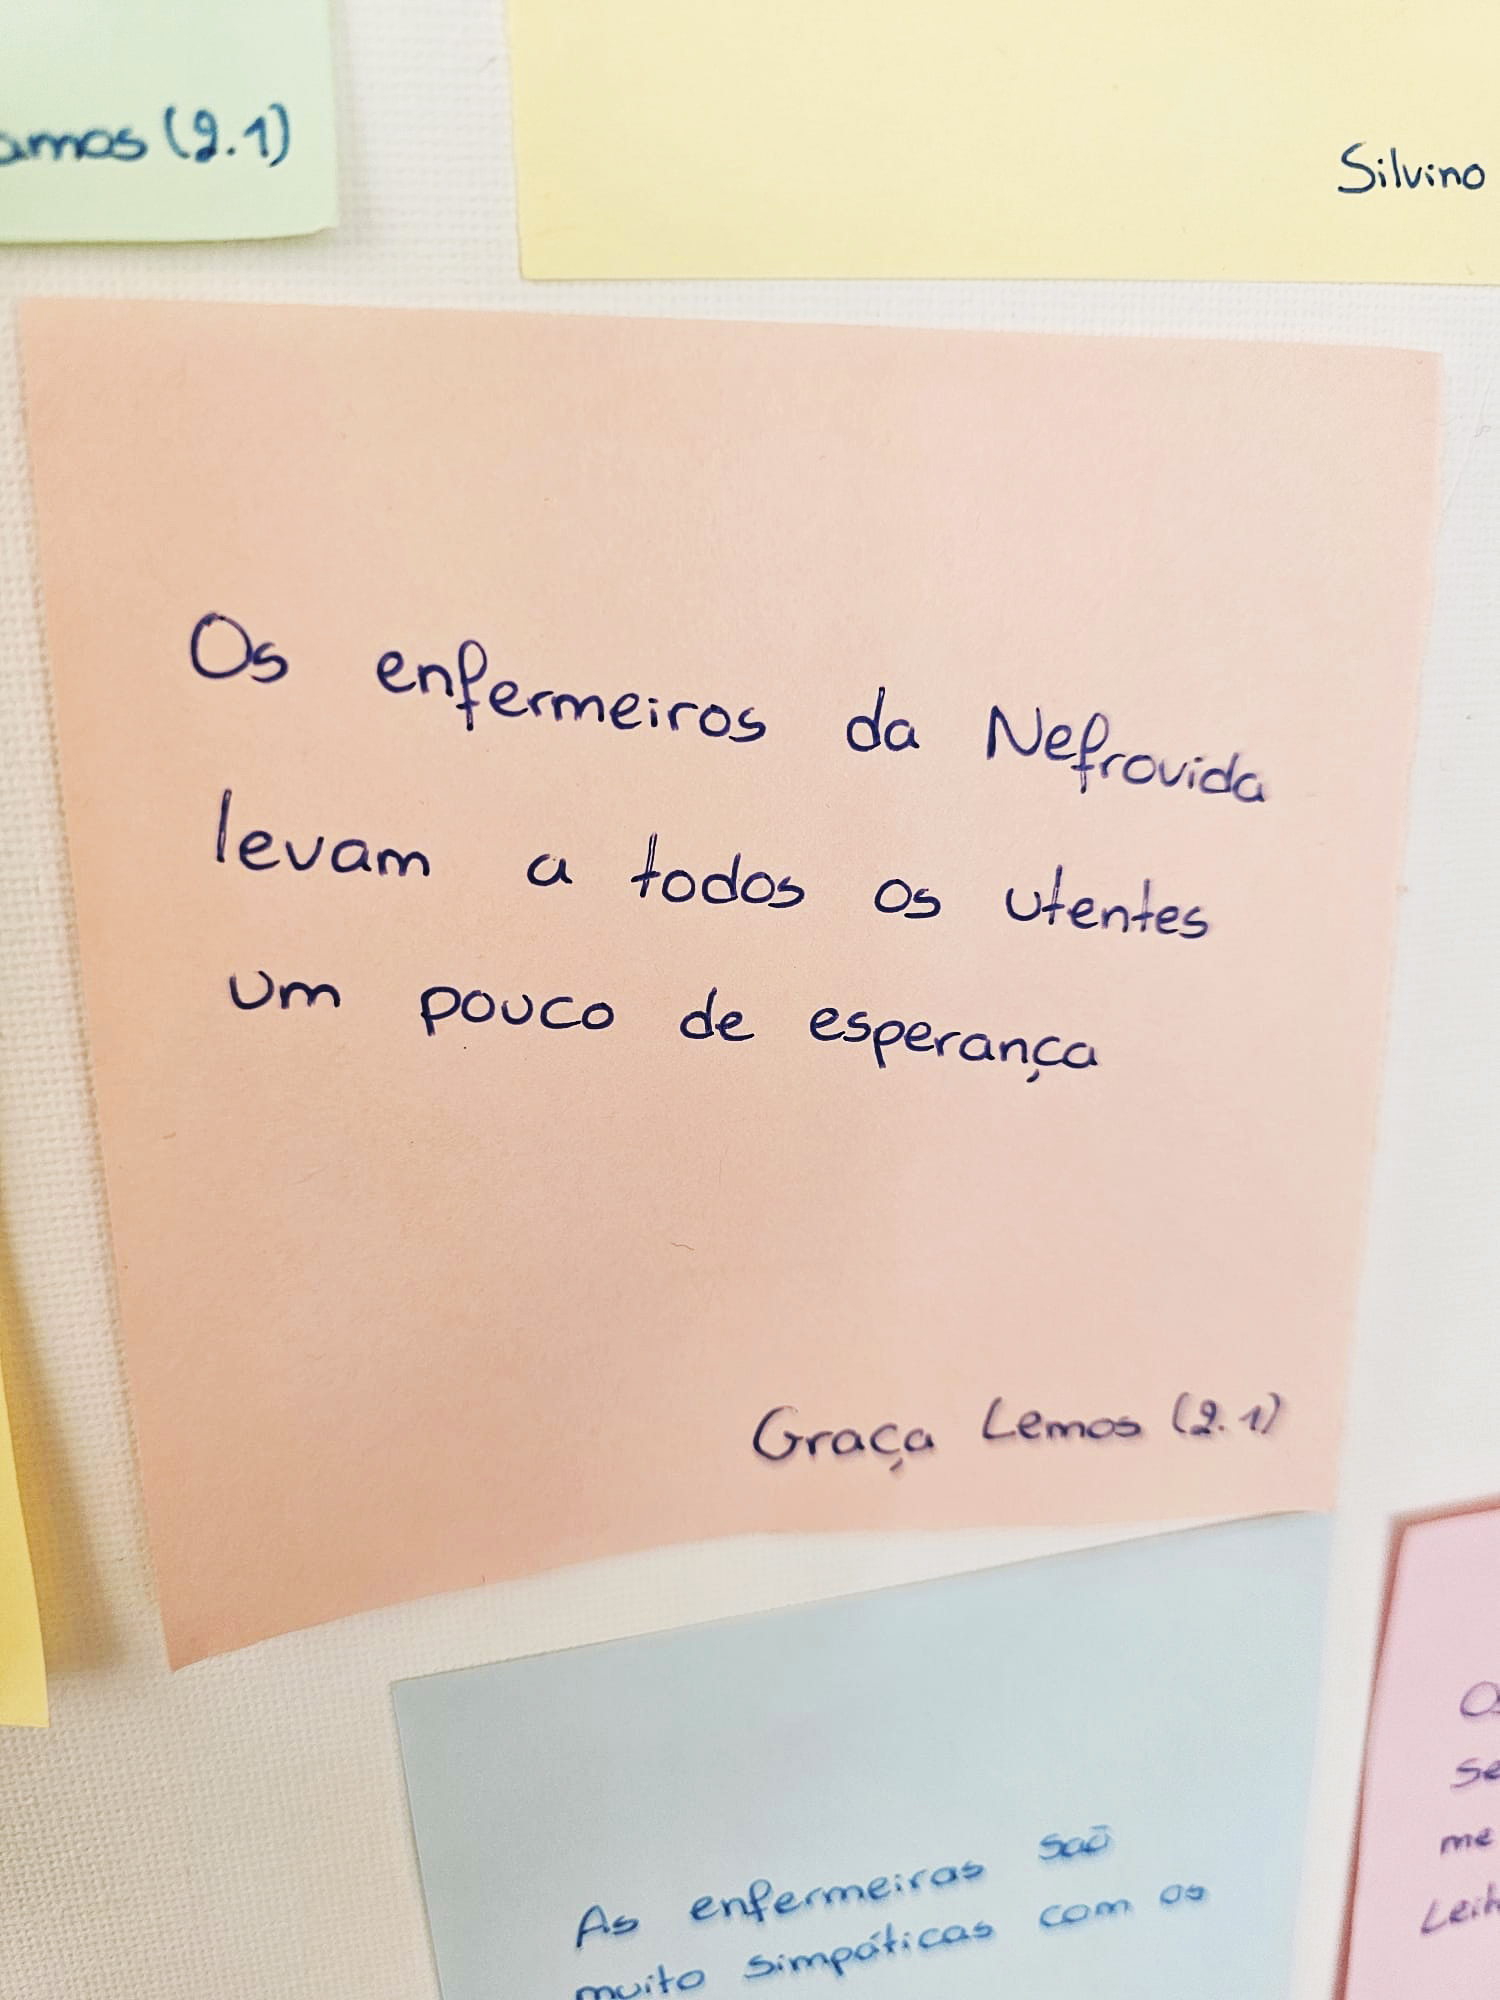 amos (2.1)
Silvino
Os enfermeiros da Nefrovida
levam a todos os utentes
um pouco de esperança
Graça Lemos (2.1)
As enfermeiras saõ
muito simpáticas com os
Os
se
me
Leit